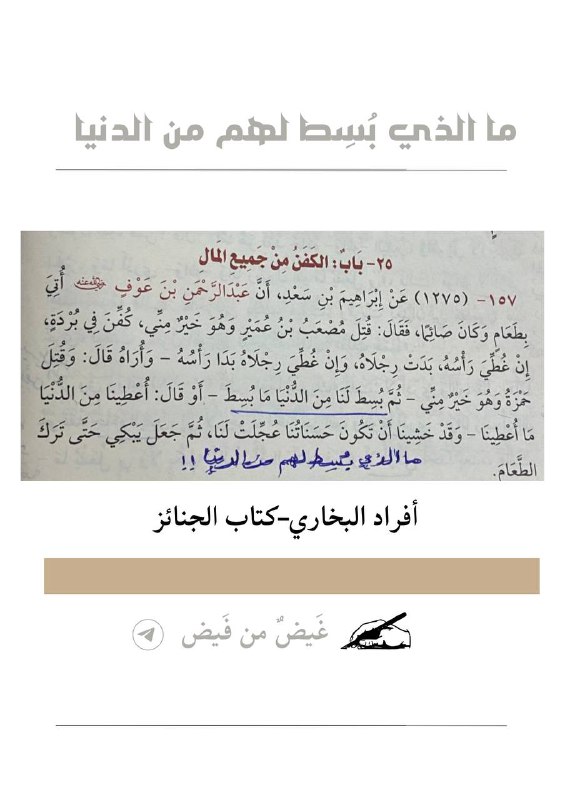 ما الذي بُسِط لهم من الدنيا
٢٥- بَابُ: الكَفَنُ مِنْ جَمِيعِ المَالِ
١٥٧- (١٢٧٥) عَنْ إِبْرَاهِيمَ بْنِ سَعْدٍ، أَنَّ عَبْدَالرَّحْمَنِ بْنَ عَوْفٍ رضي الله عنه أُتِيَ
بِطَعَامٍ وَكَانَ صَائِمًا، فَقَالَ: قُتِلَ مُصْعَبُ بْنُ عُمَيْرٍ وَهُوَ خَيْرٌ مِنِّي، كُفِّنَ فِي بُرْدَةٍ،
إِنْ غُطِّيَ رَأْسُهُ، بَدَتْ رِجْلَاهُ، وَإِنْ غُطِّيَ رِجْلَاهُ بَدَا رَأْسُهُ – وَأُرَاهُ قَالَ: وَقُتِلَ
حَمْزَةُ وَهُوَ خَيْرٌ مِنِّي – ثُمَّ بُسِطَ لَنَا مِنَ الدُّنْيَا مَا بُسِطَ – أَوْ قَالَ: أُعْطِينَا مِنَ الدُّنْيَا
مَا أُعْطِينَا – وَقَدْ خَشِينَا أَنْ تَكُونَ حَسَنَاتُنَا عُجِّلَتْ لَنَا، ثُمَّ جَعَلَ يَبْكِي حَتَّى تَرَكَ
الطَّعَامَ.
ما الذي بُسِط لهم من الدنيا !!
أفراد البخاري-كتاب الجنائز
غَيضٌ من فَيض